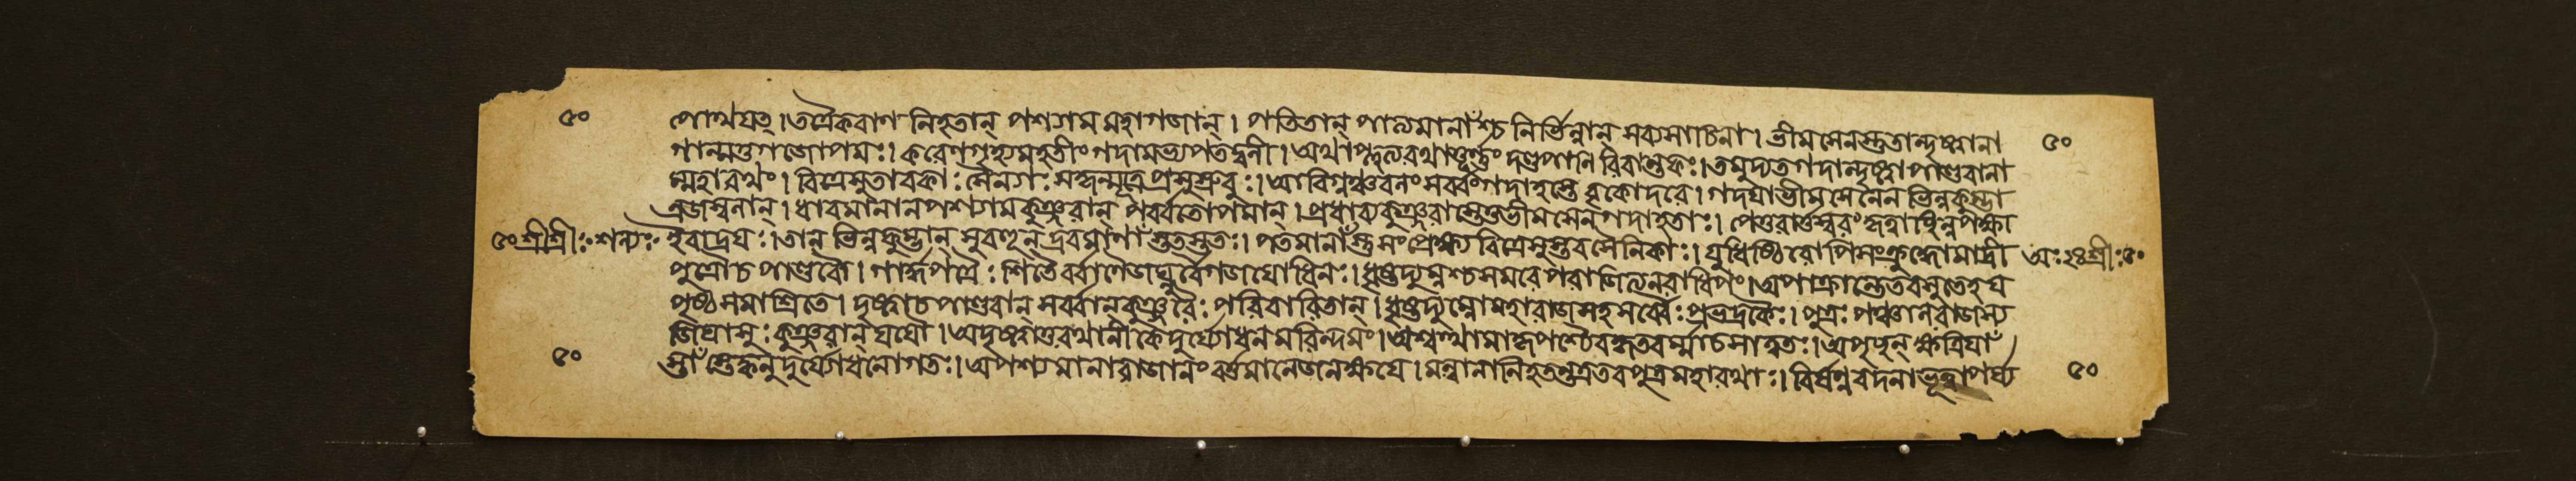 ৫০ পোথযত্। তত্রৈকবাণ নিহতান্ পশ্যাম মহাগজান্। পাতিতান্ পাত্যমানাঁশ্চ নির্ভিন্নান্ সব্যসাচিনা। ভীমসেনস্তুতান্দৃষ্ট্বানা ৫০
গান্মত্তগজোপমঃ। করেণগৃহ্যমহতীং গদামভ্যপতদ্বলী। অথাপ্লুত্যরথাত্তূর্ণ্ণং দণ্ডপাণি রিবান্তকঃ। তমুদ্যতগদান্দৃষ্ট্বা পাণ্ডবানা
ম্মহারথং। বিত্রেসুস্তাবকাঃ সৈন্যাঃ সকৃন্মূত্রেপ্রসুস্রুবুঃ। আবিগ্নঞ্চবলং সর্ব্বংগদাহস্তে বৃকোদরে। গদযাভীমসেনেন ভিন্নকুম্ভা
ন্রজস্বলান্। ধাবমানানপশ্যামকুঞ্জরান্ পর্ব্বতোপমান্। প্রধাব্যকুঞ্জরাস্তেতুভীমসেন গদাহতাঃ। পেতুরার্ত্তস্বরংকৃত্বাছিন্নপক্ষা
৫০শ্রীশ্রীঃ শল্যঃ ইবাদ্রযঃ। তান্ ভিন্নকুম্ভান্ সুবহূন্ দ্রবমাণাঁস্ততস্ততঃ। পতমানাঁস্তু সংপ্রেক্ষ্য বিত্রেসুস্তব সৈনিকাঃ। যুধিষ্ঠিরোপিসংক্রুদ্ধোমাদ্রী অঃ২৪শ্রীঃ৫০
পুত্রৌচ পাণ্ডবৌ। গার্দ্ধপত্রৈঃ শিতৈর্ব্বাণৈর্জঘ্নুর্বৈগজযোধিনঃ। ধৃষ্টদ্যুম্নশ্চসমরে পরাজিত্যনরাধিপং। অপাক্রান্তেতবসুতেহয
পৃষ্ঠংসমাশ্রিতে। দৃষ্ট্বাচপাণ্ডবান্ সর্ব্বান্কুঞ্জরৈঃ পরিবারিতান্। ধৃষ্টদ্যুম্নোমহারাজসহসর্ব্বৈঃ প্রভদ্রকৈঃ। পুত্রঃ পঞ্চালরাজস্য
জিঘাংসুঃ কুঞ্জরান্ যযৌ। অদৃষ্ট্বাতুরথানীকে দুর্য্যোধনমরিন্দমং। অশ্বত্থামাকৃপশ্চৈবকৃতবর্ম্মাচসাত্বতঃ। অপৃচ্ছন্ ক্ষত্রিযাঁ
৫০ স্তাঁস্তেক্বনু দুর্য্যোধনোগতঃ। অপশ্যমানারাজানং বর্ত্তমানেজনক্ষযে। মন্বানানিহতন্তত্রতবপুত্রমহারথাঃ। বির্ষণ্ণবদনাভূত্বাপর্য্য ৫০